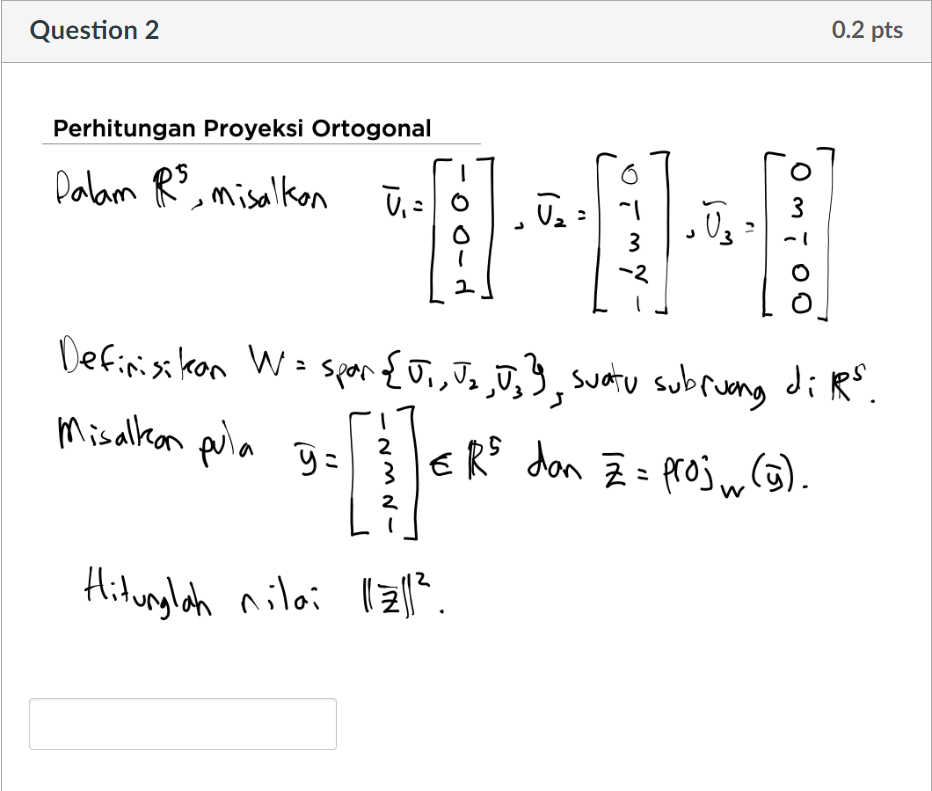 Question 2 0.2 pts
Perhitungan Proyeksi Ortogonal
Dalam ℝ⁵, misalkan ū₁ = [1 0 0 1 2], ū₂ = [0 -1 3 -2 1], ū₃ = [0 3 -1 0 0]
Definisikan W = span {ū₁, ū₂, ū₃}, suatu subruang di ℝ⁵.
Misalkan pula ȳ = [1 2 3 2 1] ∈ ℝ⁵ dan z̄ = proj_W (ȳ).
Hitunglah nilai ||z̄||².